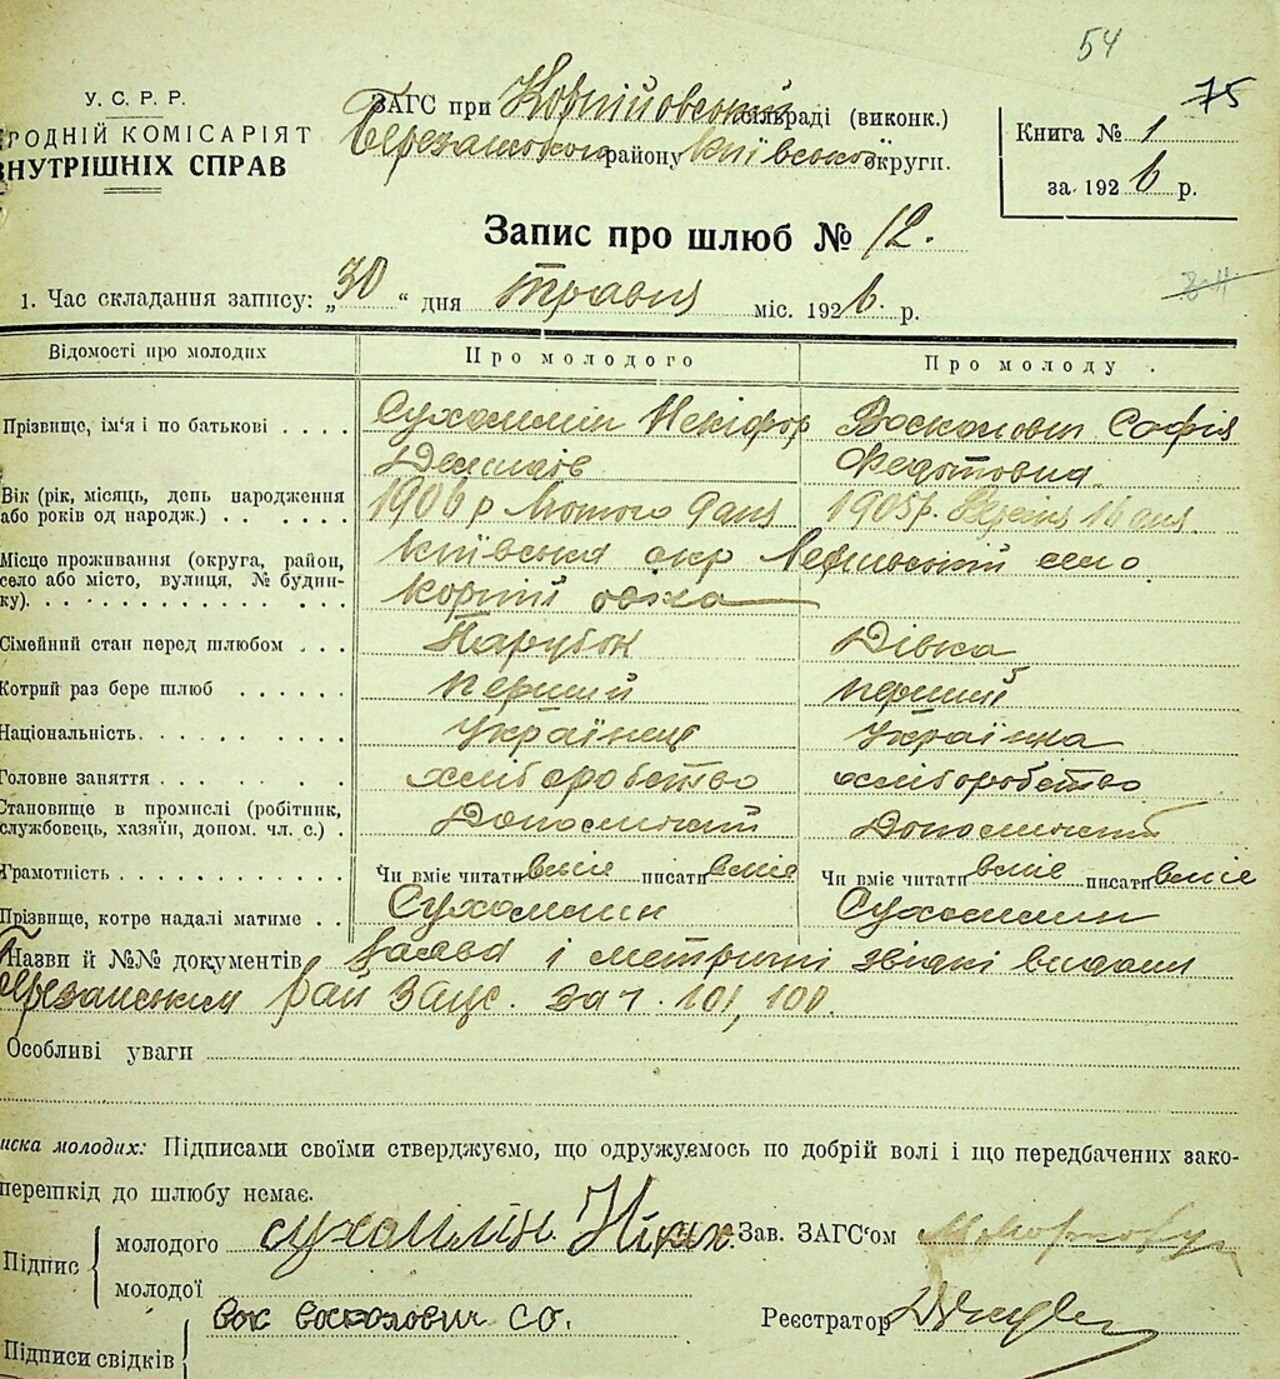 54
75
У. С. Р. Р.
РОДНІЙ КОМІСАРІЯТ
ВНУТРІШНІХ СПРАВ
ЗАГС при Корнійовський сільраді (виконк.)
Березанського району Київської округи.
Книга № 1
за 1926 р.
Запис про шлюб № 12.
1. Час складання запису: „30“ дня травня міс. 1926 р.
Відомості про молодих Про молодого Про молоду
Прізвище, ім'я і по батькові Сухомлин Некіфор Восколович Софія
Федотовна
Вік (рік, місяць, день народження 1906 р Лютого 9 дня 1905 р. 16 дня
або років од народж.)
Місце проживання (округа, район, Київська окр село
село або місто, вулиця, № будин- Корній
ку).
Сімейний стан перед шлюбом Парубок Дівка
Котрий раз бере шлюб перший перший
Національність Українець Українка
Головне заняття хліборобство хліборобство
Становище в промислі (робітник,
службовець, хазяїн, допом. чл. с.) Допоміжний Допоміжний
Грамотність Чи вміє читати вміє писати вміє Чи вміє читати вміє писати вміє
Прізвище, котре надалі матиме Сухомлин Сухомлин
Назви й №№ документів заява і метричні звідкі видани
Березанським рай Загс. за ч. 101, 100.
Особливі уваги
иска молодих: Підписами своїми стверджуємо, що одружуємось по добрій волі і що передбачених зако-
перешкід до шлюбу немає.
Підпис молодого Сухомлін. Зав. ЗАГС'ом
молодої
восколович со.
Реєстратор
Підписи свідків